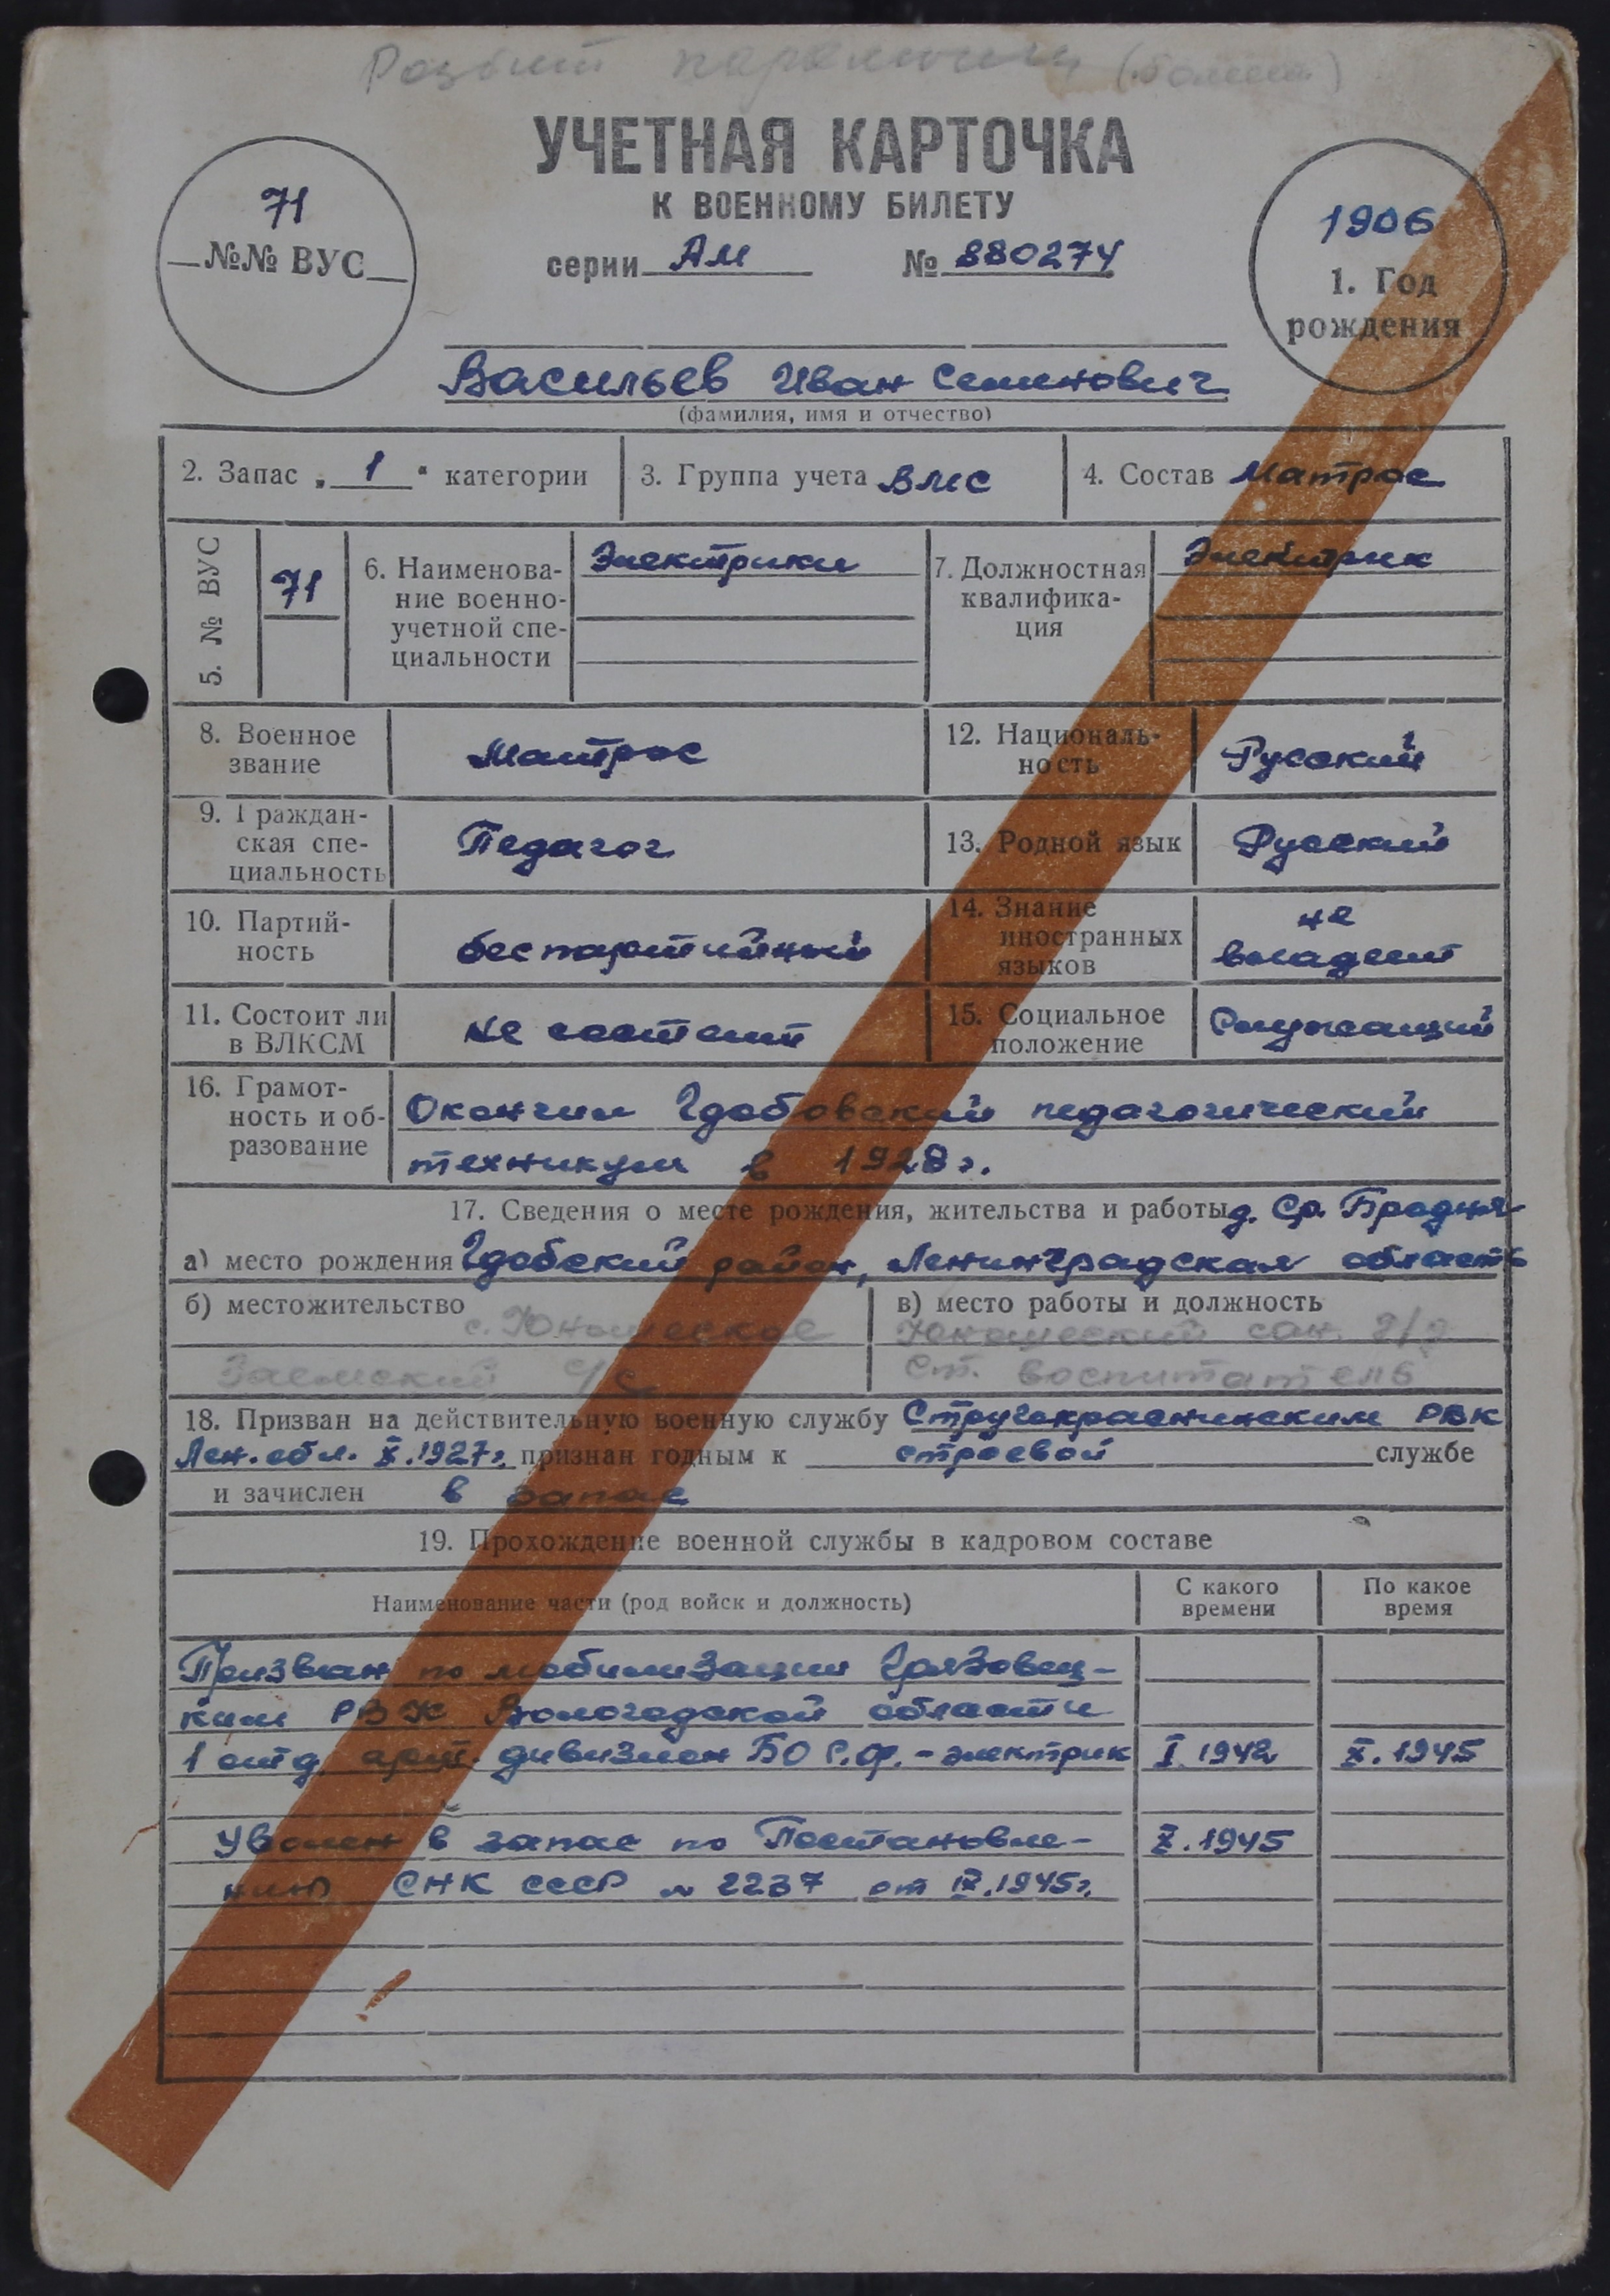 (болит)
УЧЕТНАЯ КАРТОЧКА
К ВОЕННОМУ БИЛЕТУ
серии АМ № 880274
71
№№ ВУС
1906
1. Год
рождения
Васильев Иван Семенович
(фамилия, имя и отчество)
2. Запас „1“ категории
3. Группа учета ВМС
4. Состав Матрос
5. № ВУС
71
6. Наименова-
ние военно-
учетной спе-
циальности
Электрики
7. Должностная
квалифика-
ция
Электрик
8. Военное
звание
Матрос
12. Националь-
ность
Русский
9. Граждан-
ская спе-
циальность
Педагог
13. Родной язык
Русский
10. Партий-
ность
беспартийный
14. Знание
иностранных
языков
не
владеет
11. Состоит ли
в ВЛКСМ
не состоит
15. Социальное
положение
Служащий
16. Грамот-
ность и об-
разование
Окончил Гдовский педагогический
техникум в 1928 г.
17. Сведения о месте рождения, жительства и работы д. Ср. Бродня
а) место рождения Гдовский район, Ленинградская область
б) местожительство
с. Юношеское
Заемский с/с
в) место работы и должность
Юношеский сан. д/д
Ст. воспитатель
18. Призван на действительную военную службу Стругокрасненским РВК
Лен. обл. X.1927г. признан годным к строевой службе
и зачислен в запас
19. Прохождение военной службы в кадровом составе
Наименование части (род войск и должность)
С какого
времени
По какое
время
Призван по мобилизации Грязовец-
ким РВК Вологодской области
1 отд. арт. дивизион БО С.Ф. - электрик I.1942 X.1945
Уволен в запас по Постановле- X.1945
нию СНК СССР № 2237 от IX.1945г.